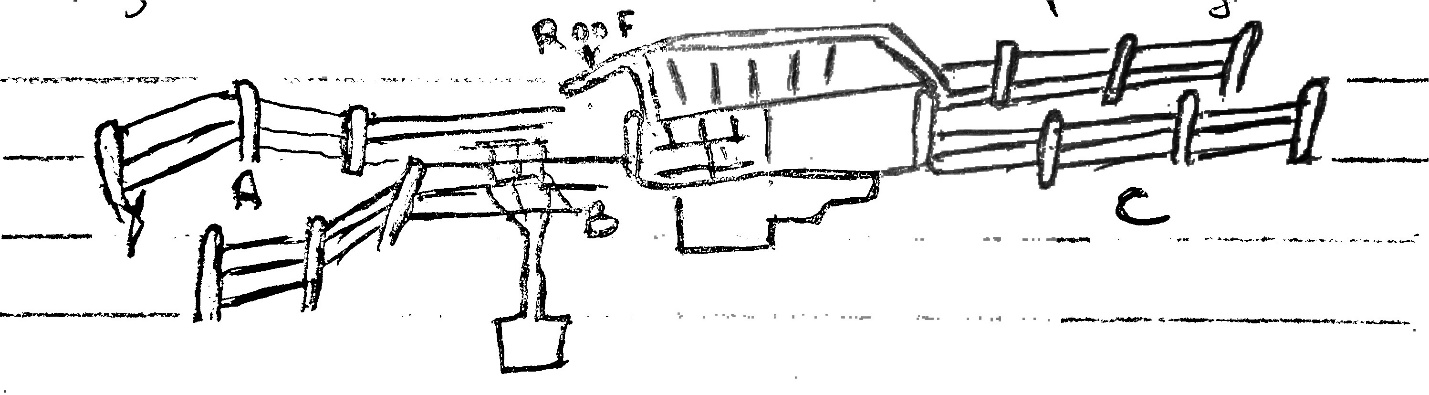 ROOF
A
B
C